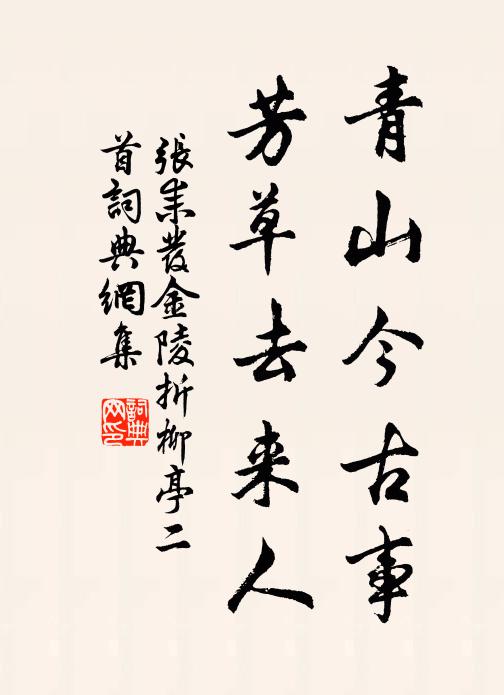 青山今古事
芳草去来人
張耒發金陵折柳亭二
首詞典網集
詞典
网印